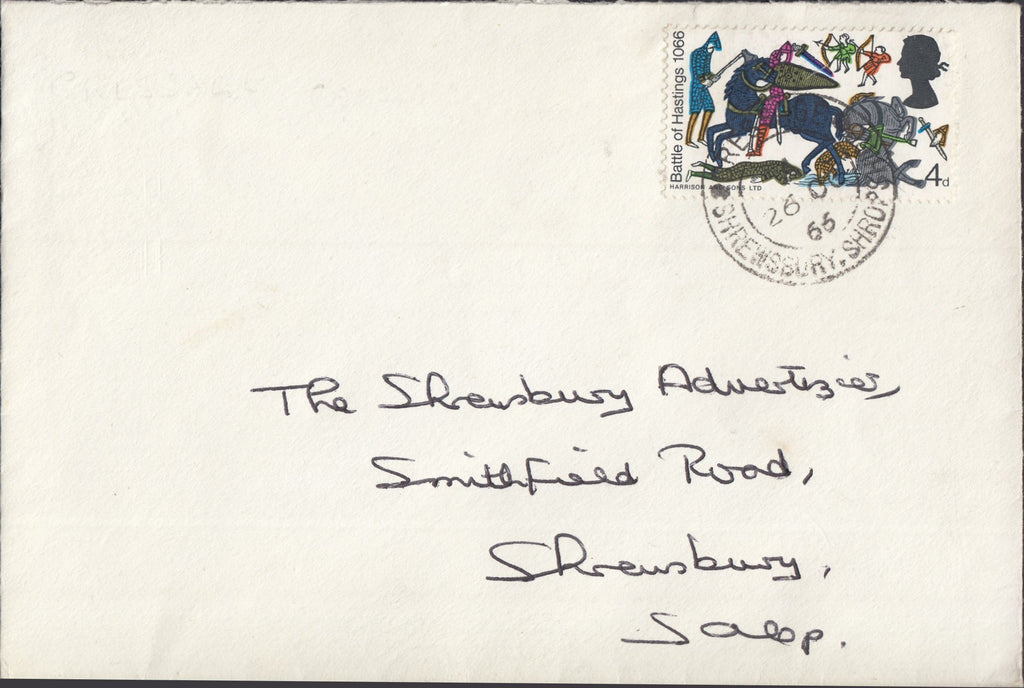 Battle of Hastings 1066
HARRISON AND SONS LTD
4d
26 O
66
SHREWSBURY, SHROPS
The Shrewsbury Advertizier,
Smithfield Road,
Shrewsbury,
Salop.